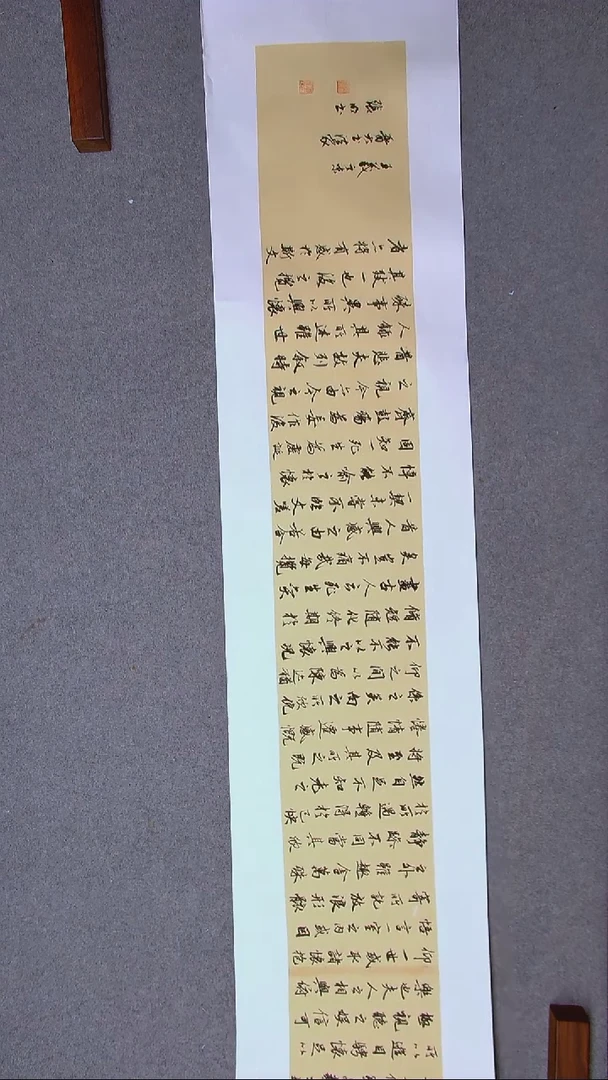 所以遊目騁懷足以
極視聽之娛信可
樂也夫人之相與俯
仰一世或取諸懷抱
悟言一室之內或因
寄所託放浪形骸
之外雖趣舍萬殊
靜躁不同當其欣
於所遇暫得於己快
然自足不知老之
將至及其所之既
惓情隨事遷感慨
係之矣向之所欣俛
仰之間以為陳迹猶
不能不以之興懷況
脩短隨化終期於
盡古人云死生亦大
矣豈不痛哉每攬
昔人興感之由若合
一契未嘗不臨文嗟
悼不能喻之於懷
固知一死生為虛誕
齊彭殤為妄作後
之視今亦由今之視
昔悲夫故列敘時
人錄其所述雖世
殊事異所以興懷
其致一也後之攬
者亦將有感於斯文